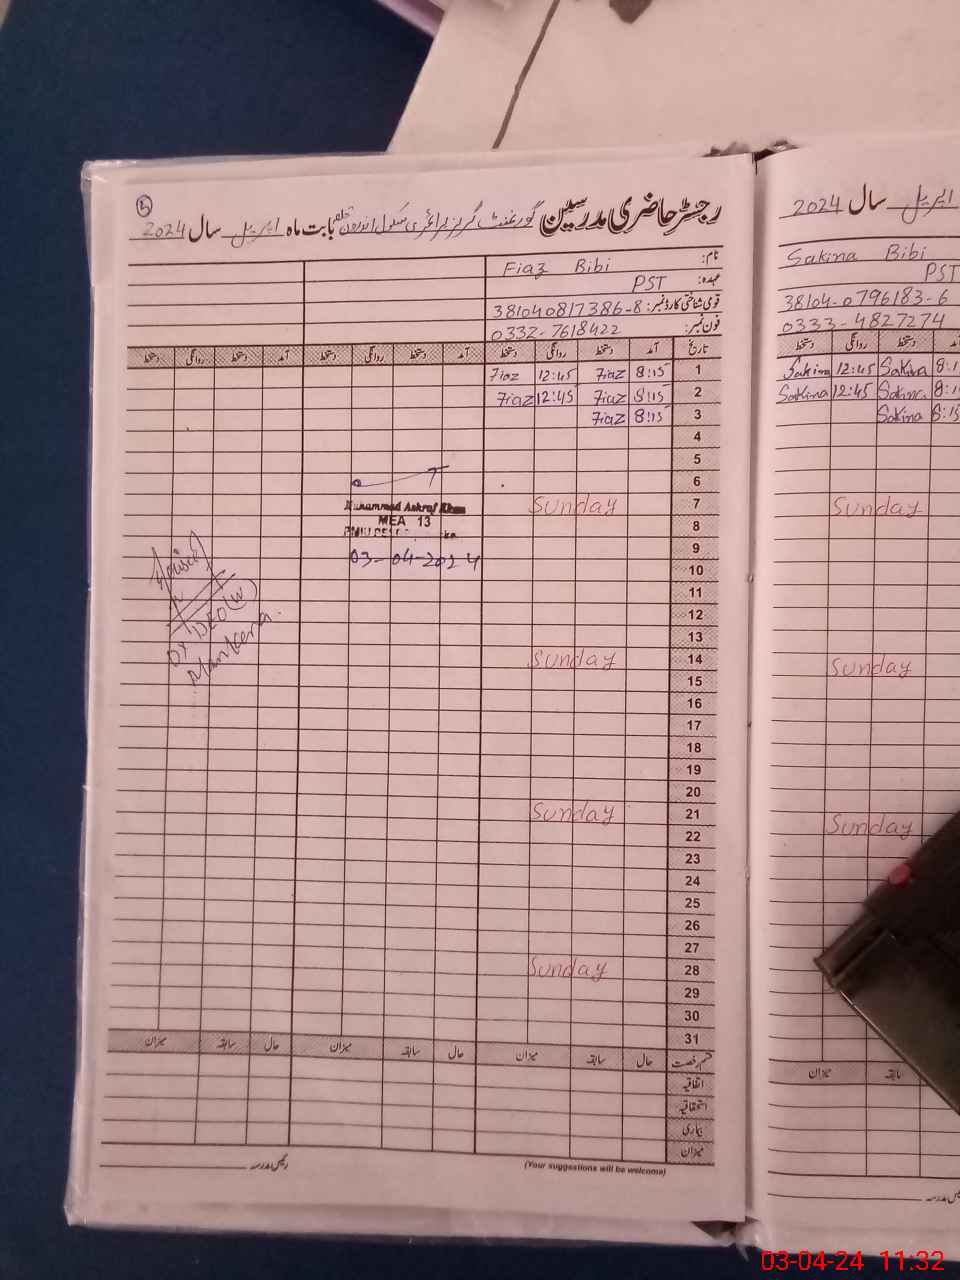 رجسٹر حاضری مدرسین گورنمنٹ گرلز پرائمری سکول اندرون بابت ماہ اپریل سال 2024
نام: Fiaz Bibi
عہدہ: PST
قومی شناختی کارڈ نمبر: 381040817386-8
فون نمبر: 0332-7618422
تاریخ آمد دستخط روانگی دستخط آمد دستخط روانگی دستخط آمد دستخط روانگی دستخط
1 8:15 Fiaz 12:45 Fiaz
2 8:15 Fiaz 12:45 Fiaz
3 8:15 Fiaz
4
5
6
7 Sunday
8
9
10
11
12
13
14 Sunday
15
16
17
18
19
20
21 Sunday
22
23
24
25
26
27
28 Sunday
29
30
31
Muhammad Ashraf Khan
MEA 13
03-04-2024
DY DEO (W)
Mankera
قسم رخصت حال سابقہ میزان حال سابقہ میزان حال سابقہ میزان
اتفاقیہ
استحقاقیہ
بیماری
میزان
رئیس مدرسہ
(Your suggestions will be welcome)
اپریل سال 2024
Sakina Bibi
PST
38104-0796183-6
0333-4827274
دستخط روانگی دستخط
Sakina 12:45 Sakina
Sakina 12:45 Sakina
Sakina
Sunday
Sunday
Sunday
سابقہ میزان
03-04-24 11:32